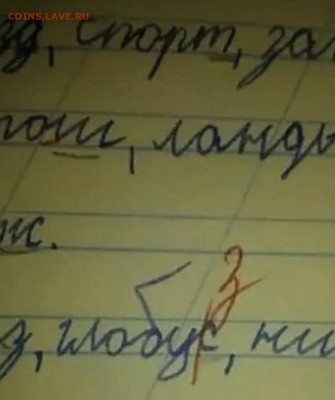 COINS.LAVE.RU
зд, спорт, за
ош, ланды
ж.
з
з, глобус, ни